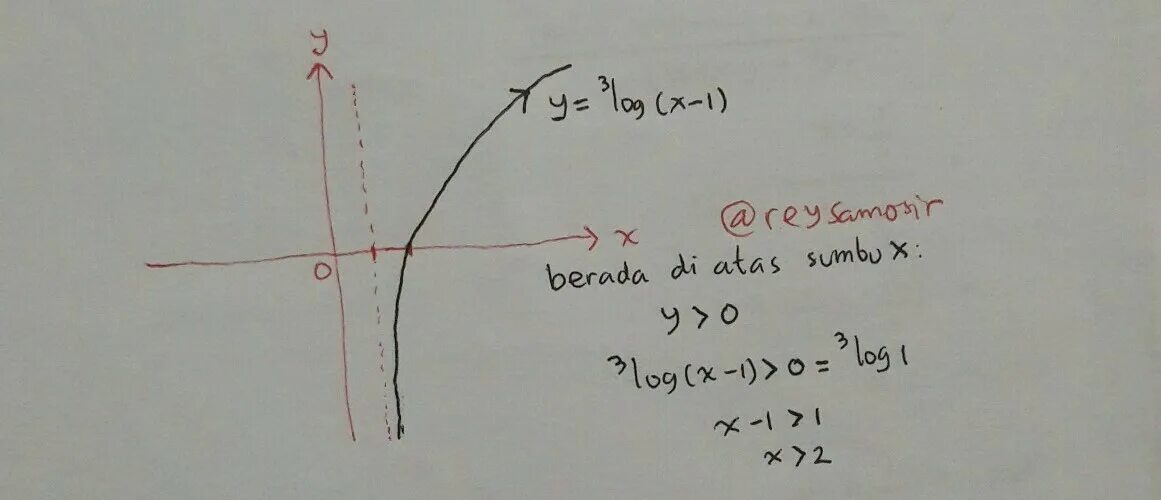 y
y = ³log (x-1)
@reysamosir
x
0
berada di atas sumbu x:
y > 0
³log(x-1) > 0 = ³log 1
x - 1 > 1
x > 2